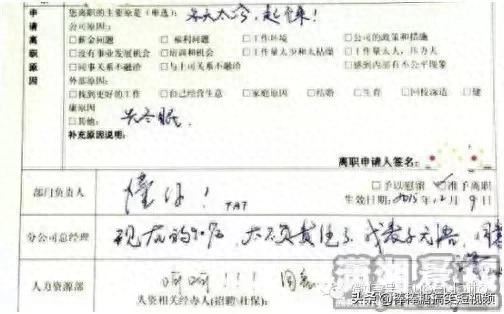 申请离职原因
您离职的主要原是(单选): 冬天太冷，起不来！
公司原因:
□薪金问题 □福利问题 □工作环境 □公司的政策和措施
□没有事业发展机会 □培训和机会 □工作量太少和太枯燥 □工作量太大，压力大
□同事关系不融洽 □与上司关系不融洽 □感到内部有不公平现象
外部原因:
□找到更好的工作 □自己经营生意 □家庭原因 □结婚 □生育 □回校深造 □健
康原因
□其他: 去冬眠。
补充原因说明:
离职申请人签名:
部门负责人 懂你！ TAT □予以慰留 ☑准予离职
生效日期: 2015 12月9日
分公司总经理 现在的90后，太不负责任了，我表示无语，同意
人力资源部 呵呵！！！ 同意
人资相关经办人(招聘/社保):
头条 @棒棒糖搞笑短视频